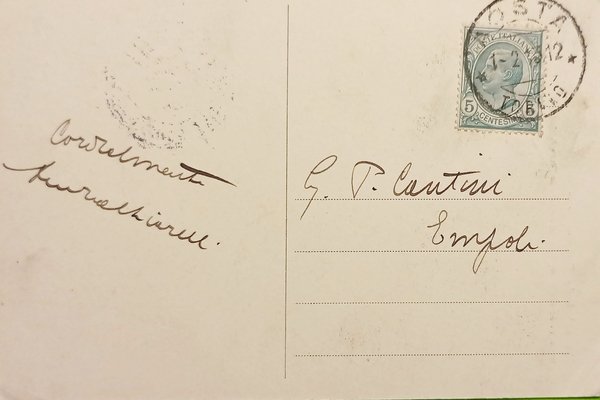 Cordialmente
G. P. Cantini
Empoli
AOSTA
TORINO
POSTE ITALIANE
5 5
CENTESIMI